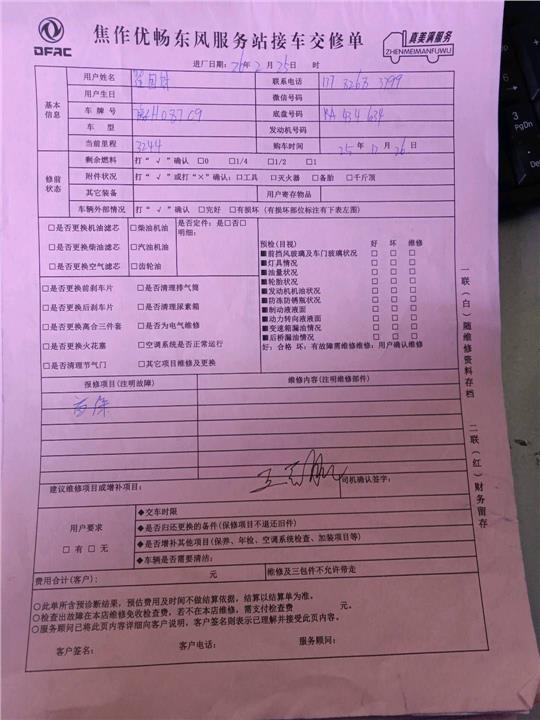 DFAC
焦作优畅东风服务站接车交修单
真美满服务
ZHENMEIMANFUWU
进厂日期：26年2月25日 时
基本信息
用户姓名 联系电话
用户生日 微信号码
车牌号 底盘号码 RA434634
车型 发动机号码
当前里程 3244 购车时间 25年12月26日
修前状态
剩余燃料 打“√”确认 □0 □1/4 □1/2 □1
附件状况 打“√”或打“×”确认：□工具 □灭火器 □备胎 □千斤顶
其它装备 用户寄存物品
车辆外部情况 打“√”确认 □完好 □有损坏（有损坏部位标注有下表左图）
□是否更换机油滤芯 □柴油机油
□是否更换柴油滤芯 □汽油机油
□是否更换空气滤芯 □齿轮油
是否定件：是□否□
明细：
□是否更换前刹车片 □是否清理排气筒
□是否更换后刹车片 □是否清理尿素箱
□是否更换离合三件套 □是否为电气维修
□是否更换火花塞 □空调系统是否正常运行
□是否清理节气门 □其它项目维修及更换
预检(目视) 好 坏 维修
■前挡风玻璃及车门玻璃状况 □ □ □
■灯具情况 □ □ □
■油量状况 □ □ □
■轮胎状况 □ □ □
■发动机机油状况 □ □ □
■防冻防锈瓶状况 □ □ □
■制动液液面 □ □ □
■动力转向液液面 □ □ □
■变速箱漏油情况 □ □ □
■后桥漏油情况 □ □ □
好：合格 坏：有故障需维修维修：用户确认维修
报修项目(注明故障) 维修内容(注明维修部件)
首保
建议维修项目或增补项目： 司机确认签字：
用户要求
□有 □无
◆交车时限
◆是否归还更换的备件(保修项目不退还旧件)
◆是否增补其他项目(保养、年检、空调系统检查、加装项目等)
◆车辆是否需要清洁：
费用合计(客户)： 元 维修及三包件不允许带走
○此单所含预诊断结果，预估费用及时间不做结算依据，结算以结算单为准。
○检查出故障在本店维修免收检查费，若不在本店维修，需支付检查费 元。
○服务顾问已将此页内容详细向客户说明，客户签名则表示已理解并接受此页内容。
客户签名： 客户电话： 服务顾问：
一联(白)随维修资料存档
二联(红)财务留存
3
PgDn
Del